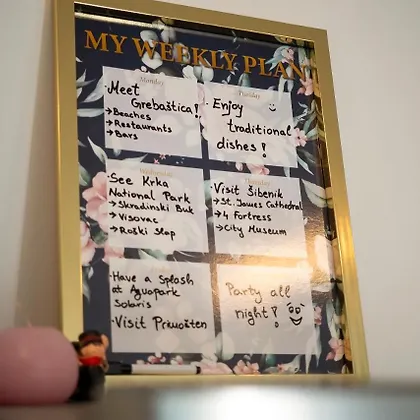 MY WEEKLY PLAN
Monday
·Meet
Grebaštica!
→Beaches
→Restaurants
→Bars
Tuesday
·Enjoy
traditional
dishes!
Wednesday
·See Krka
National Park
→Skradinski Buk
→Visovac
→Roški Slap
Thursday
·Visit Šibenik
→St. James Cathedral
→4 Fortress
→City Museum
·Have a Splash
at Aquapark
Solaris
·Visit Primošten
Party all
night!